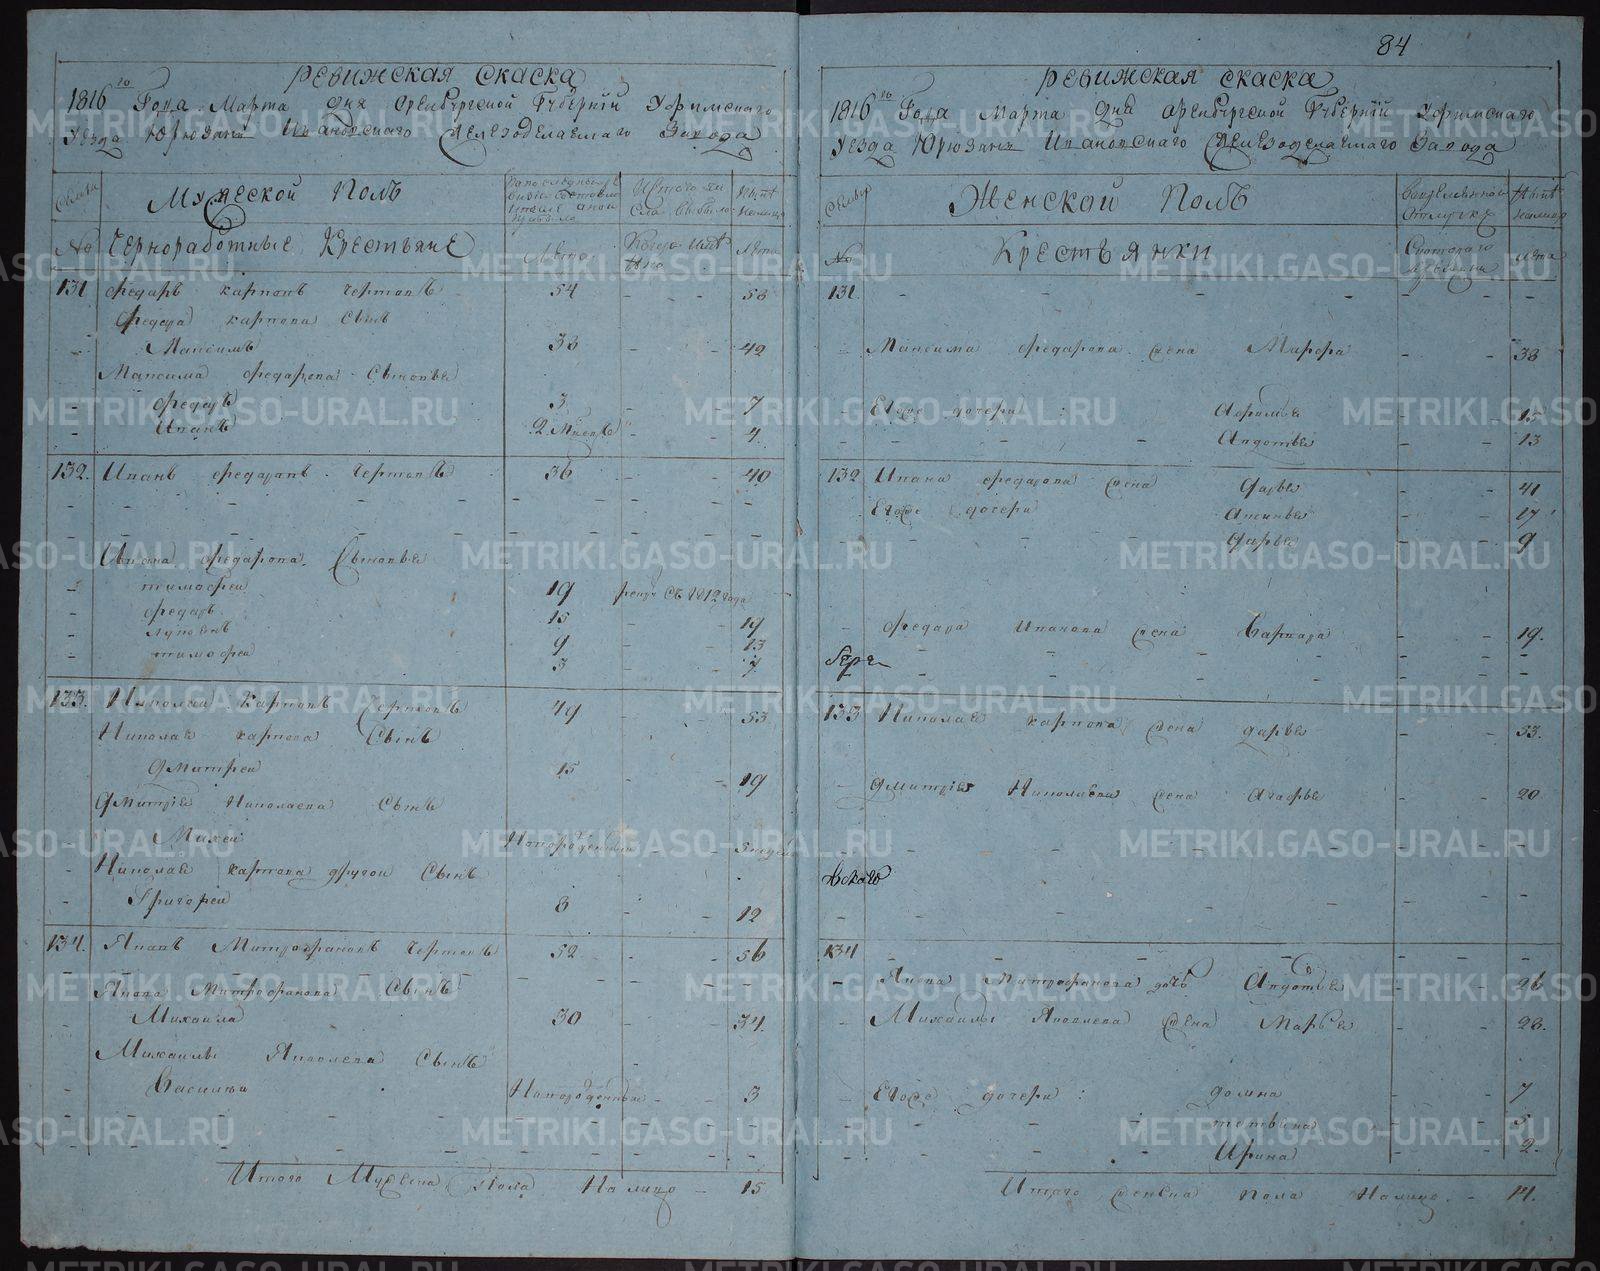 84
РЕВИЖСКАЯ СКАСКА
1816го Года Марта дня Оренбургской Губернии Уфимскаго
Уезда Юрюзань Ивановскаго Железоделаемаго Завода
Мужеской Полъ
№ Черноработные Крестьяне
Лета
Лета
131 Федаръ карповъ Чертовъ 54 - - 58
Федара карпова Сынъ
- Максимъ 38 - - 42
Максима федарова Сыновье
- федаръ 3 - - 7
- Иванъ 2 Месецъ - - 4
132. Иванъ федаровъ Чертовъ 36 - - 40
Ивана федарова Сыновье
- тимофеи 19 рекру Съ 1812 года
- федаръ 15 - - 19
- 9 - - 13
- тимофеи 3 - - 7
133. Николаи Карповъ Чертовъ 49 - - 53
Николая карпова Сынъ
Дмитреи 15 - - 19
Дмитрея Николаева Сынъ
- Михеи Новорожденныи - -
Николая карпова другои Сынъ
- Григореи 8 - - 12
134. Яковъ Митрофановъ Чертовъ 52 - - 56
Якова Митрофанова Сынъ
- Михаила 30 - - 34
Михаилы Яковлева Сынъ
- Василеи Новорожденныи - 3
Итого Мужеска Пола На лицо - 15
РЕВИЖСКАЯ СКАСКА
1816го Года Марта Дня Оренбургской Губернии Уфимскаго
Уезда Юрюзань Ивановскаго Железоделаемаго Завода
Женской Полъ
№ Крестьянки
Лета
131.
- Максима федарова жена Марфа - - 38
- Егоже дочери: Афимья - - 15
Авдотья - - 13
132 Ивана федарова жена Дарья - - 41
Егоже дочери Аксинья - - 17
Дарья - - 9
- федара Иванова жена Варвара - - 19.
133 Николая карпова жена дарья - - 53.
- Дмитрея Николаева жена Агафья - - 20
134
- Якова Митрофанова дочь Авдотья - - 26
- Михаилы Яковлева жена Марья - - 28.
- Егоже дочери: домна - - 7
- - 5
Ирина - - 2.
Итого женска пола На лицо - 14.